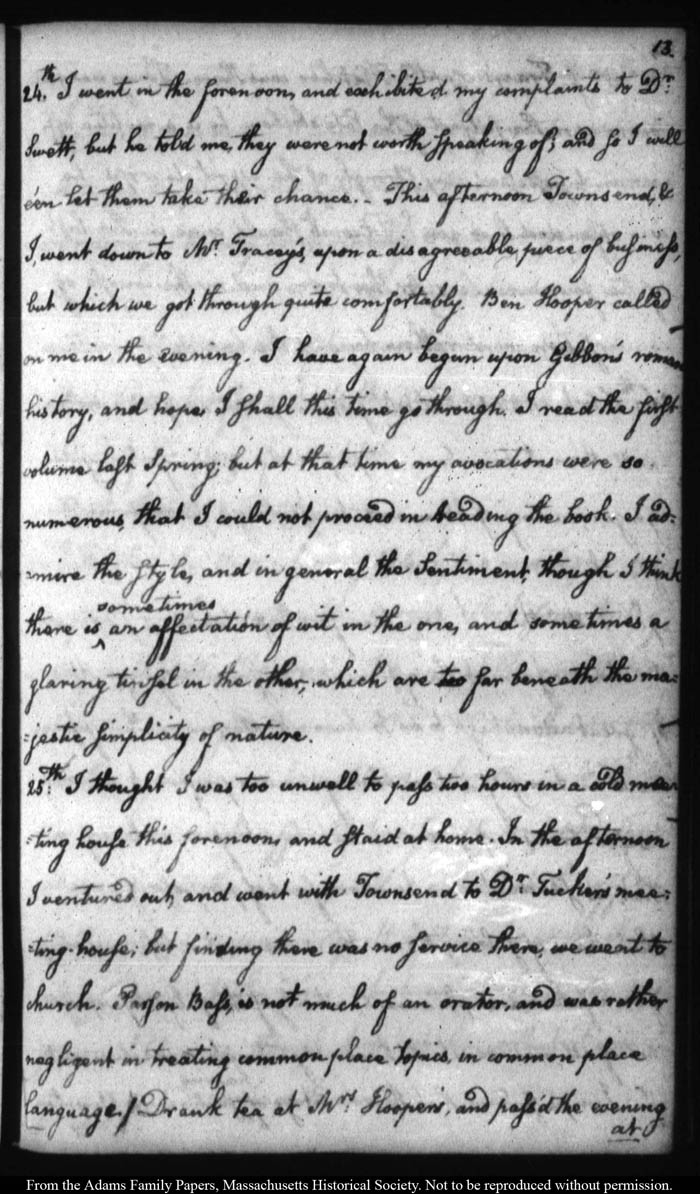 13.
24.th I went in the forenoon, and exhibited my complaints to Dr.
Swett, but he told me, they were not worth speaking of; and so I will
e'en let them take their chance. - This afternoon Townsend, &
I, went down to Mr. Tracey's, upon a disagreeable piece of business,
but which we got through quite comfortably. Ben Hooper called
on me in the evening. I have again begun upon Gibbon's roman
history, and hope I shall this time go through. I read the first
volume last Spring; but at that time my avocations were so
numerous, that I could not proceed in reading the book. I ad=
=mire the style, and in general the sentiment, though I think
sometimes
there is ^ an affectation of wit in the one, and sometimes a
glaring tinsel in the other, which are too far beneath the ma=
=jestic simplicity of nature.
25.th I thought I was too unwell to pass two hours in a cold mee=
=ting house this forenoon, and staid at home. In the afternoon
I ventured out, and went with Townsend to Dr. Tucker's mee=
=ting-house; but finding there was no service there, we went to
church. Parson Bass, is not much of an orator, and was rather
negligent in treating common place topics, in common place
language. / Drank tea at Mrs. Hooper's, and pass'd the evening
at
From the Adams Family Papers, Massachusetts Historical Society. Not to be reproduced without permission.